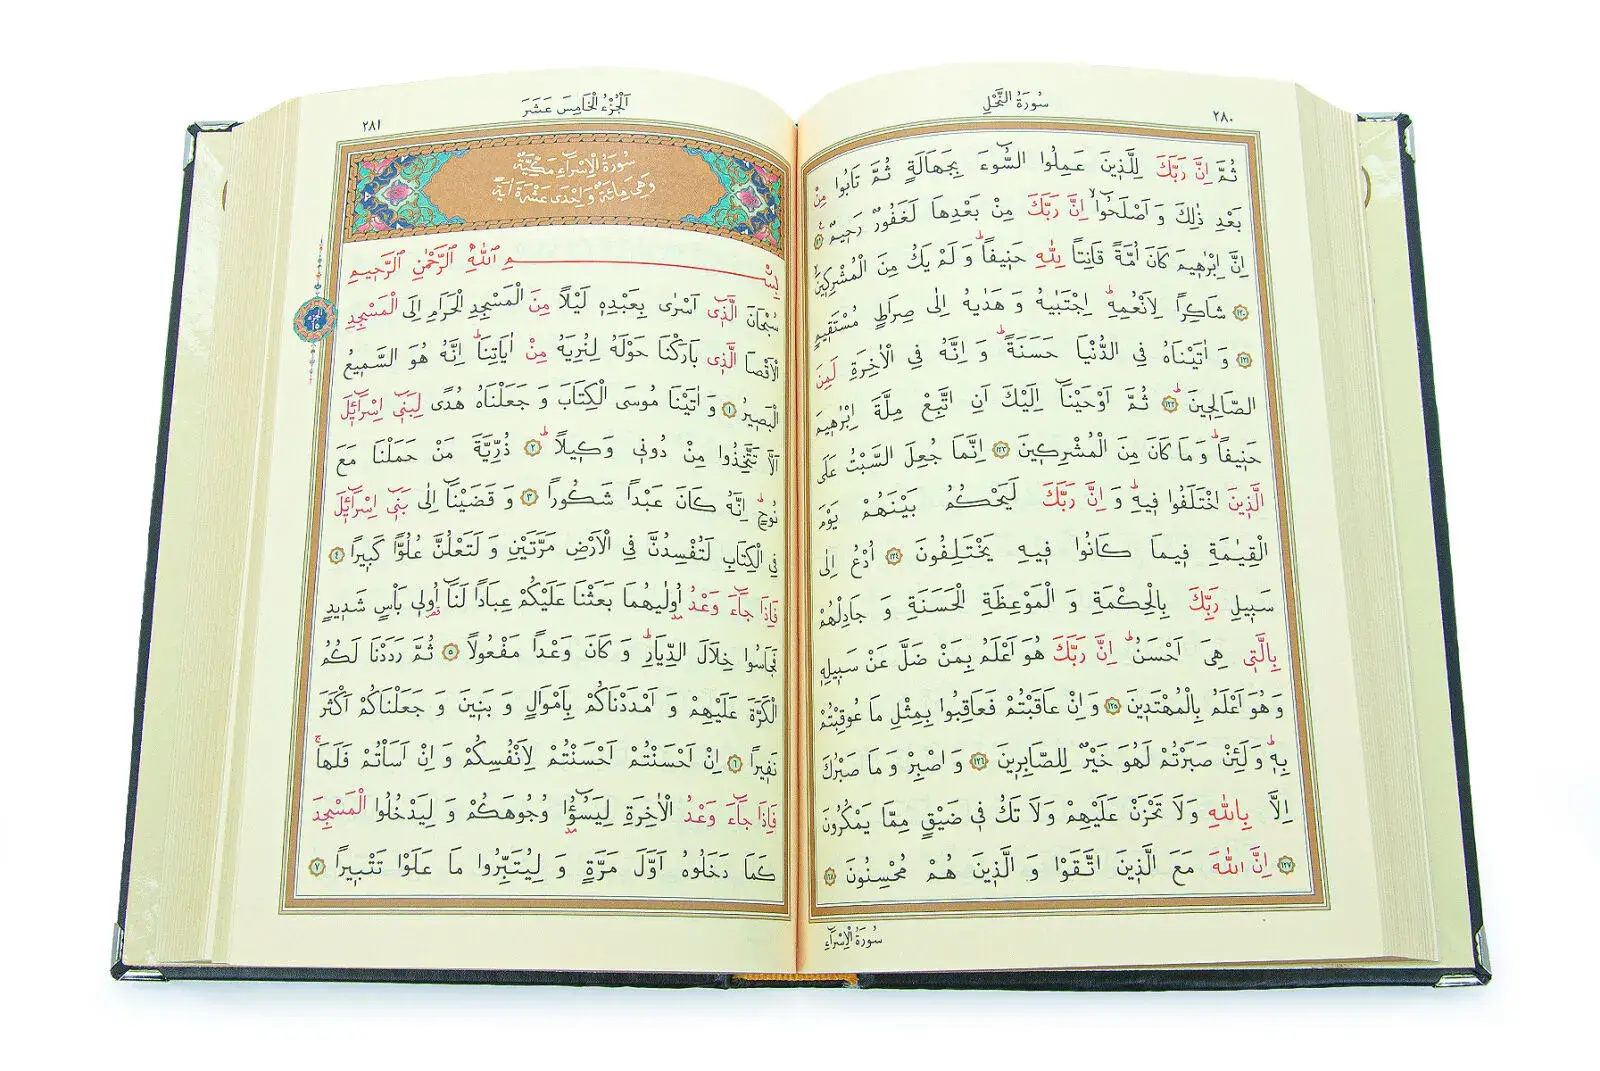 سُورَةُ النَّحْلِ
٢٨٠
ثُمَّ اِنَّ رَبَّكَ لِلَّذ۪ينَ عَمِلُوا السُّٓوءَ بِجَهَالَةٍ ثُمَّ تَابُوا مِنْ
بَعْدِ ذٰلِكَ وَ اَصْلَحُٓواۙ اِنَّ رَبَّكَ مِنْ بَعْدِهَا لَغَفُورٌ رَح۪يمٌ ﴿١١٩﴾
اِنَّ اِبْرٰه۪يمَ كَانَ اُمَّةً قَانِتًا لِلّٰهِ حَن۪يفًاۜ وَ لَمْ يَكُ مِنَ الْمُشْرِك۪ينَۙ
﴿١٢٠﴾ شَاكِرًا لِاَنْعُمِهِۜ اِجْتَبٰيهُ وَ هَدٰيهُ اِلٰى صِرَاطٍ مُسْتَق۪يمٍ
﴿١٢١﴾ وَ اٰتَيْنَاهُ فِي الدُّنْيَا حَسَنَةًۜ وَ اِنَّهُ فِي الْاٰخِرَةِ لَمِنَ
الصَّالِح۪ينَۜ ﴿١٢٢﴾ ثُمَّ اَوْحَيْنَٓا اِلَيْكَ اَنِ اتَّبِعْ مِلَّةَ اِبْرٰه۪يمَ
حَن۪يفًاۜ وَ مَا كَانَ مِنَ الْمُشْرِك۪ينَ ﴿١٢٣﴾ اِنَّمَا جُعِلَ السَّبْتُ عَلَى
الَّذ۪ينَ اخْتَلَفُوا ف۪يهِۜ وَ اِنَّ رَبَّكَ لَيَحْكُمُ بَيْنَهُمْ يَوْمَ
الْقِيٰمَةِ ف۪يمَا كَانُوا ف۪يهِ يَخْتَلِفُونَ ﴿١٢٤﴾ اُدْعُ اِلٰى
سَب۪يلِ رَبِّكَ بِالْحِكْمَةِ وَ الْمَوْعِظَةِ الْحَسَنَةِ وَ جَادِلْهُمْ
بِالَّت۪ي هِيَ اَحْسَنُۜ اِنَّ رَبَّكَ هُوَ اَعْلَمُ بِمَنْ ضَلَّ عَنْ سَب۪يلِه۪
وَ هُوَ اَعْلَمُ بِالْمُهْتَد۪ينَ ﴿١٢٥﴾ وَ اِنْ عَاقَبْتُمْ فَعَاقِبُوا بِمِثْلِ مَا عُوقِبْتُمْ
بِه۪ۜ وَ لَئِنْ صَبَرْتُمْ لَهُوَ خَيْرٌ لِلصَّابِر۪ينَ ﴿١٢٦﴾ وَ اصْبِرْ وَ مَا صَبْرُكَ
اِلَّا بِاللّٰهِ وَ لَا تَحْزَنْ عَلَيْهِمْ وَ لَا تَكُ ف۪ي ضَيْقٍ مِمَّا يَمْكُرُونَ
﴿١٢٧﴾ اِنَّ اللّٰهَ مَعَ الَّذ۪ينَ اتَّقَوْا وَ الَّذ۪ينَ هُمْ مُحْسِنُونَ ﴿١٢٨﴾
سُورَةُ الْاِسْرَٓاءِ
اَلْجُزْءُ الْخَامِسَ عَشَرَ
٢٨١
سُورَةُ الْاِسْرَٓاءِ مَكِّيَّةٌ
وَهِيَ مِائَةٌ وَ اِحْدٰى عَشْرَةَ اٰيَةً
بِسْمِ اللّٰهِ الرَّحْمٰنِ الرَّح۪يمِ
سُبْحَانَ الَّذ۪ٓي اَسْرٰى بِعَبْدِه۪ لَيْلًا مِنَ الْمَسْجِدِ الْحَرَامِ اِلَى الْمَسْجِدِ
الْاَقْصَا الَّذ۪ي بَارَكْنَا حَوْلَهُ لِنُرِيَهُ مِنْ اٰيَاتِنَاۜ اِنَّهُ هُوَ السَّم۪يعُ
الْبَص۪يرُ ﴿١﴾ وَ اٰتَيْنَا مُوسَى الْكِتَابَ وَ جَعَلْنَاهُ هُدًى لِبَن۪ٓي اِسْرَٓائ۪لَ
اَلَّا تَتَّخِذُوا مِنْ دُون۪ي وَك۪يلًاۜ ﴿٢﴾ ذُرِّيَّةَ مَنْ حَمَلْنَا مَعَ
نُوحٍۜ اِنَّهُ كَانَ عَبْدًا شَكُورًا ﴿٣﴾ وَ قَضَيْنَٓا اِلٰى بَن۪ٓي اِسْرَٓائ۪لَ
فِي الْكِتَابِ لَتُفْسِدُنَّ فِي الْاَرْضِ مَرَّتَيْنِ وَ لَتَعْلُنَّ عُلُوًّا كَب۪يرًا ﴿٤﴾
فَاِذَا جَٓاءَ وَعْدُ اُو۫لٰيهُمَا بَعَثْنَا عَلَيْكُمْ عِبَادًا لَنَٓا اُو۬ل۪ي بَأْسٍ شَد۪يدٍ
فَجَاسُوا خِلَالَ الدِّيَارِۜ وَ كَانَ وَعْدًا مَفْعُولًا ﴿٥﴾ ثُمَّ رَدَدْنَا لَكُمُ
الْكَرَّةَ عَلَيْهِمْ وَ اَمْدَدْنَاكُمْ بِاَمْوَالٍ وَ بَن۪ينَ وَ جَعَلْنَاكُمْ اَكْثَرَ
نَف۪يرًا ﴿٦﴾ اِنْ اَحْسَنْتُمْ اَحْسَنْتُمْ لِاَنْفُسِكُمْ وَ اِنْ اَسَأْتُمْ فَلَهَاۚ
فَاِذَا جَٓاءَ وَعْدُ الْاٰخِرَةِ لِيَسُٓؤُ۫ا وُجُوهَكُمْ وَ لِيَدْخُلُوا الْمَسْجِدَ
كَمَا دَخَلُوهُ اَوَّلَ مَرَّةٍ وَ لِيُتَبِّرُوا مَا عَلَوْا تَتْب۪يرًا ﴿٧﴾
الجزء
١٥